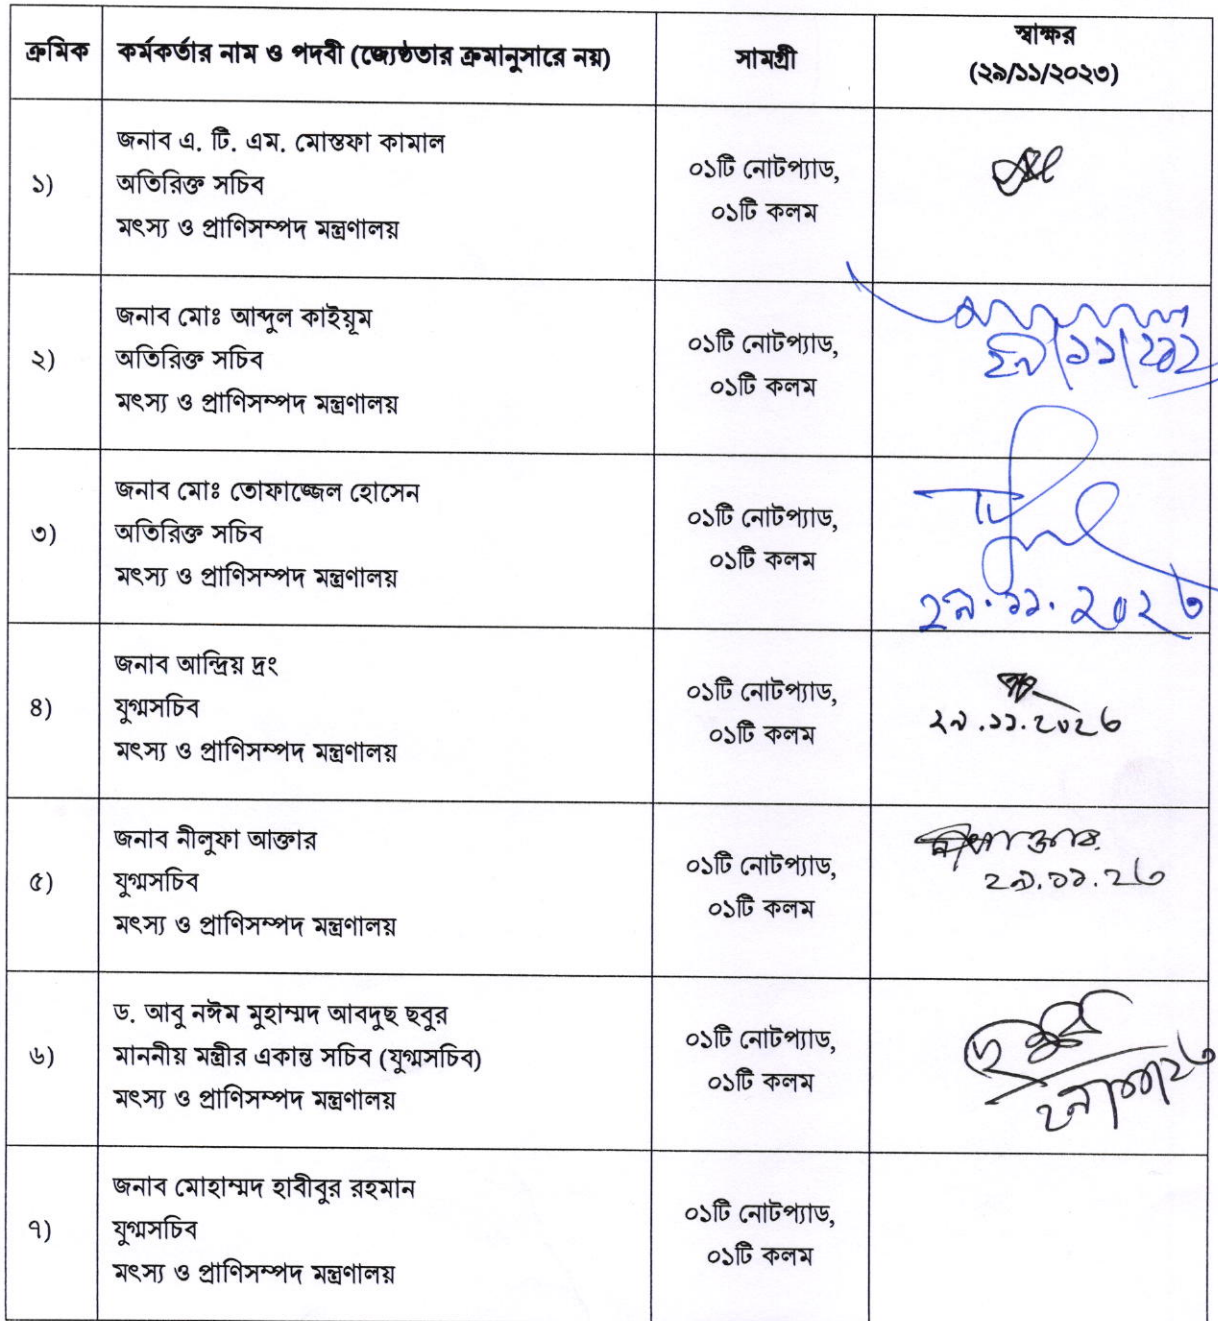 ক্রমিক কর্মকর্তার নাম ও পদবী (জ্যেষ্ঠতার ক্রমানুসারে নয়) সামগ্রী স্বাক্ষর
(২৯/১১/২০২৩)
১) জনাব এ. টি. এম. মোস্তফা কামাল
অতিরিক্ত সচিব
মৎস্য ও প্রাণিসম্পদ মন্ত্রণালয়
০১টি নোটপ্যাড,
০১টি কলম
২) জনাব মোঃ আব্দুল কাইয়ূম
অতিরিক্ত সচিব
মৎস্য ও প্রাণিসম্পদ মন্ত্রণালয়
০১টি নোটপ্যাড,
০১টি কলম
৩) জনাব মোঃ তোফাজ্জেল হোসেন
অতিরিক্ত সচিব
মৎস্য ও প্রাণিসম্পদ মন্ত্রণালয়
০১টি নোটপ্যাড,
০১টি কলম
২৯.১১.২০২৩
৪) জনাব আন্দ্রিয় দ্রং
যুগ্মসচিব
মৎস্য ও প্রাণিসম্পদ মন্ত্রণালয়
০১টি নোটপ্যাড,
০১টি কলম
২৯.১১.২০২৩
৫) জনাব নীলুফা আক্তার
যুগ্মসচিব
মৎস্য ও প্রাণিসম্পদ মন্ত্রণালয়
০১টি নোটপ্যাড,
০১টি কলম
২৯.১১.২৩
৬) ড. আবু নঈম মুহাম্মদ আবদুছ ছবুর
মাননীয় মন্ত্রীর একান্ত সচিব (যুগ্মসচিব)
মৎস্য ও প্রাণিসম্পদ মন্ত্রণালয়
০১টি নোটপ্যাড,
০১টি কলম
২৯/১১/২৩
৭) জনাব মোহাম্মদ হাবীবুর রহমান
যুগ্মসচিব
মৎস্য ও প্রাণিসম্পদ মন্ত্রণালয়
০১টি নোটপ্যাড,
০১টি কলম